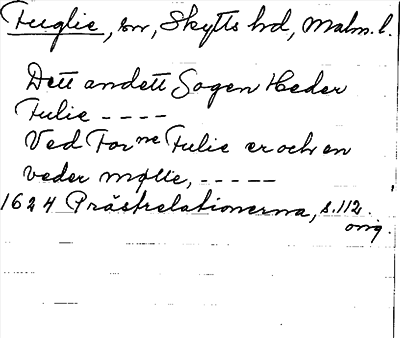 Fuglie, sn, Skytts hd, Malm. l.
Dett andett Sogen Heder
Fulie ----
Ved For ne Fulie er och en
veder mølle, -----
1624 Prästrelationerna, s. 112.
orig.